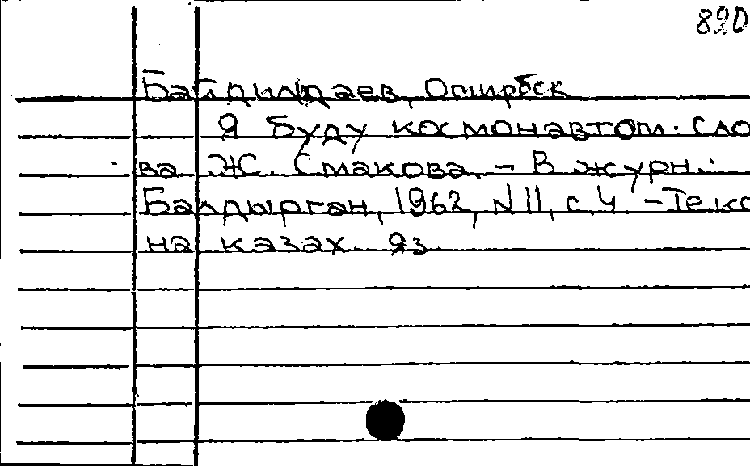 890
Байдилдаев, Оширбек
Я буду космонавтом. Сло
ва Ж. Смакова. - В журн.:
Балдырган, 1962, N11, с. 4. - Текс
на казах. яз.